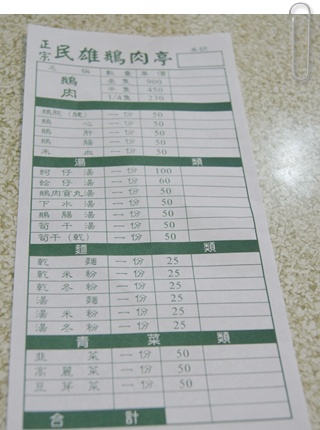 正宗 民雄鵝肉亭
品 名 數量 單價
鵝肉 全隻 900
半隻 450
1/4隻 230
一份 50
鵝 心 一份 50
鵝 肝 一份 50
鵝 腸 一份 50
米 血 一份 50
湯 類
蚵仔湯 一份 100
蛤仔湯 一份 60
鵝肉貢丸湯 一份 50
下水湯 一份 50
鵝腸湯 一份 50
筍干湯 一份 50
筍干(乾) 一份 50
麵 類
乾 麵 一份 25
乾米粉 一份 25
乾冬粉 一份 25
湯 麵 一份 25
湯米粉 一份 25
湯冬粉 一份 25
青 菜 類
韭 菜 一份 50
高麗菜 一份 50
豆芽菜 一份 50
合 計